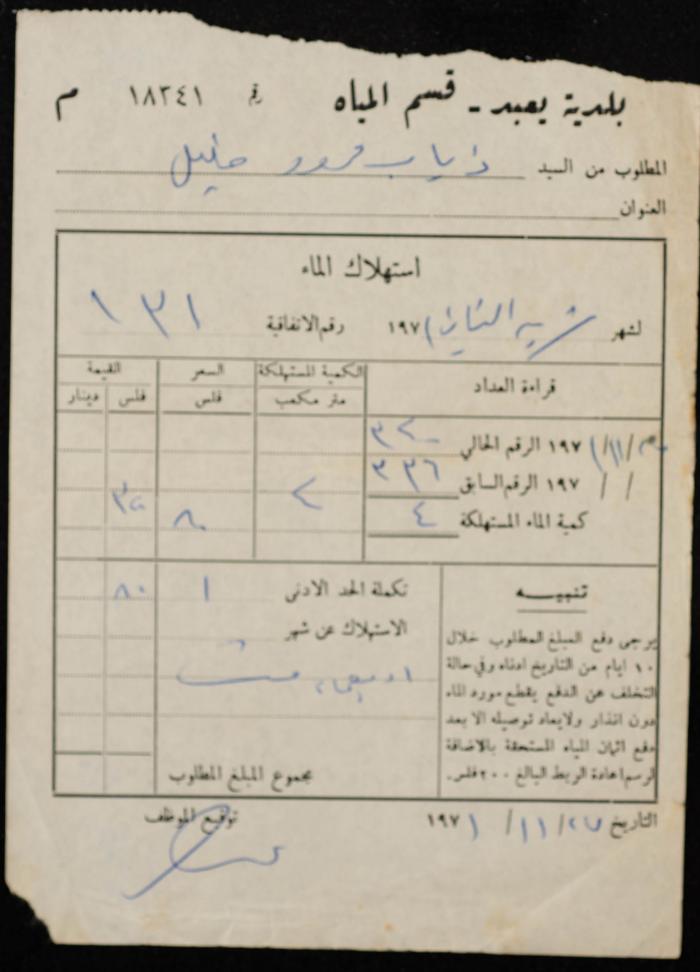 بلدية يعبد - قسم المياه رقم ١٨٢٤١ م
المطلوب من السيد ذياب خليل
العنوان
استهلاك الماء
لشهر تشرين الثاني ١٩٧١ رقم الاتفاقية ١٣١
قراءة العداد الكمية المستهلكة السعر القيمة
متر مكعب فلس فلس دينار
/١١/١ ١٩٧ الرقم الحالي ٣٤٠
/ / ١٩٧ الرقم السابق ٣٣٦
كمية الماء المستهلكة ٤
٨٠
تنبيه
يرجى دفع المبلغ المطلوب خلال
١٠ ايام من التاريخ ادناه وفي حالة
التخلف عن الدفع يقطع مورد الماء
دون انذار ولايعاد توصيله الا بعد
دفع اثمان المياه المستحقة بالاضافة
لرسم اعادة الربط البالغ ٢٠٠ فلس.
تكملة الحد الادنى ١ ٨٠
الاستهلاك عن شهر
مجموع المبلغ المطلوب
التاريخ ٢٧/١١/١٩٧١
توقيع الموظف